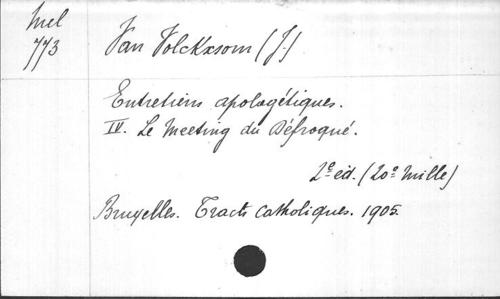 Mel
773
Van Volckxsom (J.)
Entretiens apologétiques.
IV. Le Meeting du Défroqué.
2e éd. (20e Mille)
Bruxelles. Tracts Catholiques. 1905.